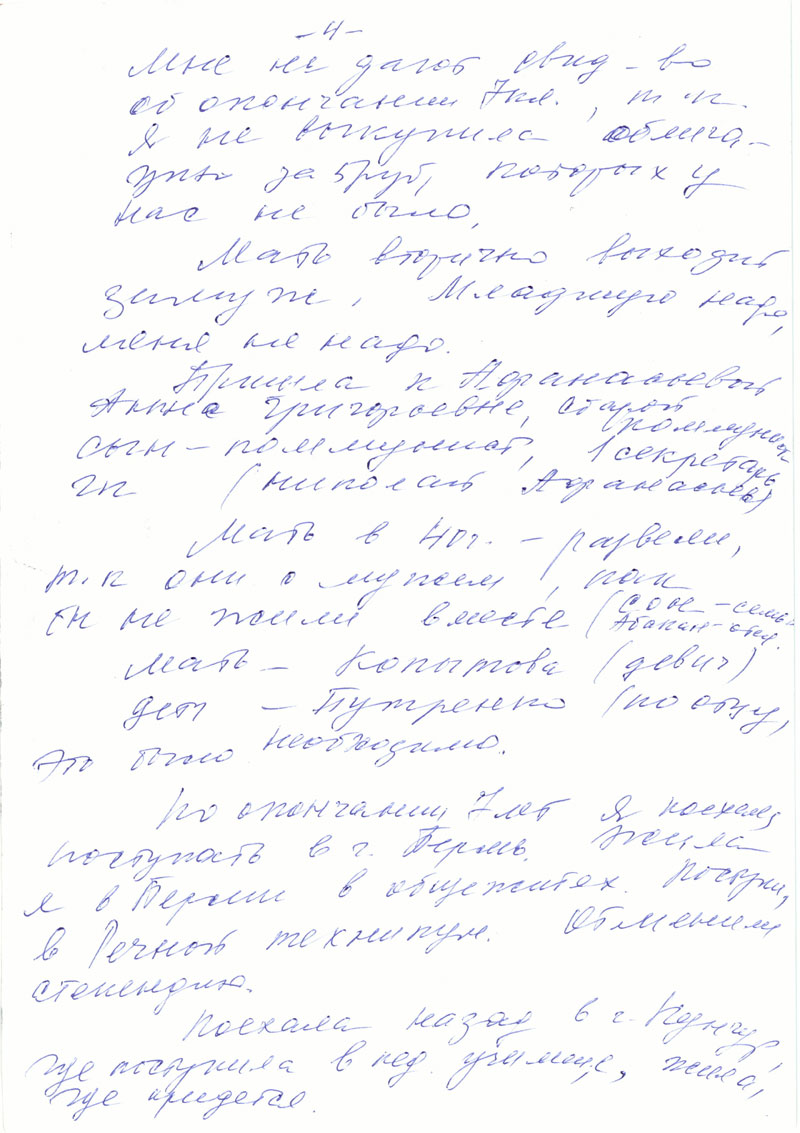 -4-
Мне не дают свид-во
об окончании 7кл., т.к.
я не выкупила облига-
цию за 5руб, которых у
нас не было,
Мать вторично выходит
замуж, Младшую надо,
меня не надо.
Пришла к Афанасьевой
Анне Григорьевне, старой
коммунист
сын-коммунист, 1 секретарь
ГК (николай Афанасьев)
Мать в 40г. - развели,
т.к они с мужем, как
не жили вместе (
Абакан-отец.
Мать - Копытова (девич)
дети - Путренко (по отцу,
это было необходимо.
По окончании 7лет я поехала
поступать в г. Пермь. Жила
я в Перми в общежитях. Поступи,
в Речной техникум. Отменили
стипендию.
Поехала назад в г. Кунгур,
где поступила в пед. училище, жила,
где придется.